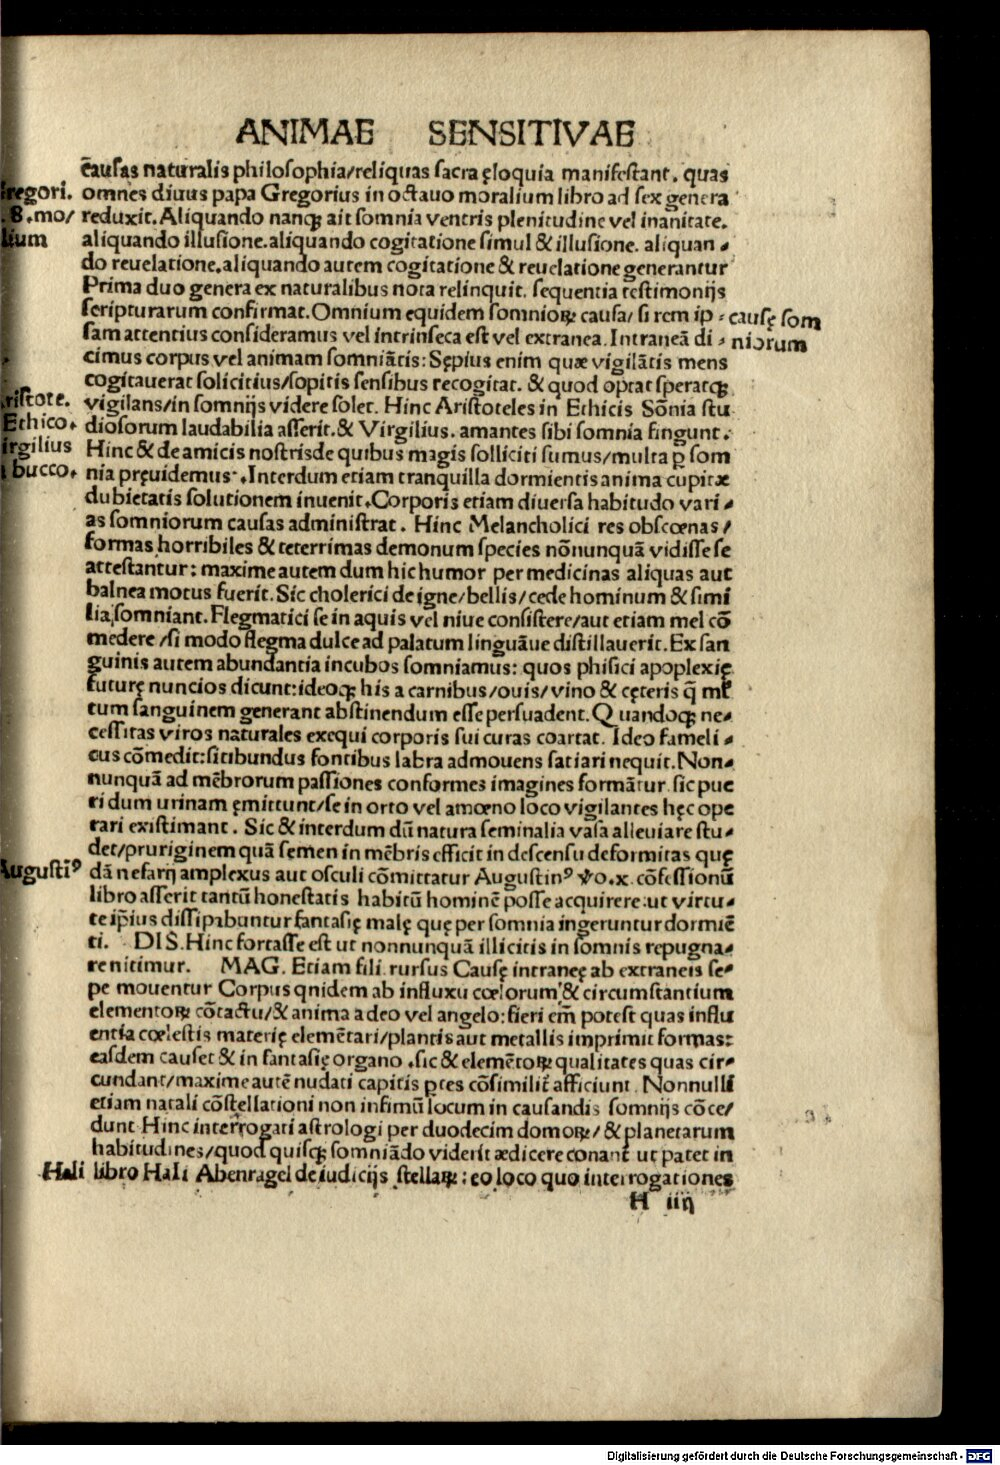 ANIMAE SENSITIVAE
cāusas naturalis philosophia/reliquas sacra ęloquia manifestant. quas
omnes diuus papa Gregorius in octauo moralium libro ad sex genera
reduxit. Aliquando nanqꝫ ait somnia ventris plenitudine vel inanitate.
aliquando illusione. aliquando cogitatione simul & illusione. aliquan⸗
do reuelatione. aliquando autem cogitatione & reuelatione generantur
Prima duo genera ex naturalibus nota relinquit. sequentia testimonijs
scripturarum confirmat. Omnium equidem somnioꝝ causa/ si rem ip⸗
sam attentius consideramus vel intrinseca est vel extranea. Intraneā di⸗
cimus corpus vel animam somniātis: Sępius enim quæ vigilātis mens
cogitauerat solicitius/sopitis sensibus recogitat. & quod optat speratqꝫ
vigilans/in somnijs videre solet. Hinc Aristoteles in Ethicis Sōnia stu
diosorum laudabilia asserit. & Virgilius. amantes sibi somnia fingunt.
Hinc & de amicis nostris de quibus magis solliciti sumus/multa ꝑ som
nia pręuidemus. Interdum etiam tranquilla dormientis anima cupitæ
dubietatis solutionem inuenit. Corporis etiam diuersa habitudo vari⸗
as somniorum causas administrat. Hinc Melancholici res obscœnas/
formas horribiles & teterrimas demonum species nōnunquā vidisse se
attestantur: maxime autem dum hic humor per medicinas aliquas aut
balnea motus fuerit. Sic cholerici de igne/bellis/cede hominum & simi
lia somniant. Flegmatici se in aquis vel niue consistere/aut etiam mel cō
medere/si modo flegma dulce ad palatum linguāue distillauerit. Ex san
guinis autem abundantia incubos somniamus: quos phisici apoplexię
futurę nuncios dicunt: ideoqꝫ his a carnibus/ouis/vino & cęteris q̄ ml̄
tum sanguinem generant abstinendum esse persuadent. Quandoqꝫ ne⸗
cessitas viros naturales exequi corporis sui curas coartat. Ideo fameli⸗
cus cōmedit: sitibundus fontibus labra admouens satiari nequit. Non⸗
nunquā ad mēbrorum passiones conformes imagines formātur. sic pue
ri dum urinam ęmittunt/se in orto vel amœno loco vigilantes hęc ope
rari existimant. Sic & interdum dū natura seminalia vasa alleuiare stu⸗
det/pruriginem quā semen in mēbris efficit in descensu deformitas quę
dā nefarij amplexus aut osculi cōmittatur Augustinꝰ vo. x. cōfessionū
libro asserit tantū honestatis habitū hominē posse acquirere: ut virtu⸗
te ip̄ius dissipabuntur fantasię malę quę per somnia ingeruntur dormiē
ti. DIS. Hinc fortasse est ut nonnunquā illicitis in somnis repugna⸗
re nitimur. MAG. Etiam fili. rursus Causę intraneę ab extraneis sę⸗
pe mouentur Corpus qnidem ab influxu cœlorum & circumstantium
elementoꝝ cōtactu/& anima a deo vel angelo: fieri em̄ potest quas influ
entia cœlestis materię elemētari/plantis aut metallis imprimit formas:
easdem causet & in fantasię organo. sic & elemētoꝝ qualitates quas cir⸗
cundant/maxime autē nudati capitis ꝑtes cōsimilit̄ afficiunt. Nonnulli
etiam natali cōstellationi non infimū locum in causandis somnijs cōce/
dunt Hinc interrogati astrologi per duodecim domoꝝ/& planetarum
habitudines/quod quisqꝫ somniādo viderit ædicere conant̄ ut patet in
libro Hali Abenragel de iudicijs stellaꝝ: eo loco quo interrogationes
H iiij
regori.
.8. mo/
lium
causę som
niorum
ristote.
Ethico.
irgilius
bucco.
Augustiꝰ
Hali
Digitalisierung gefördert durch die Deutsche Forschungsgemeinschaft - DFG